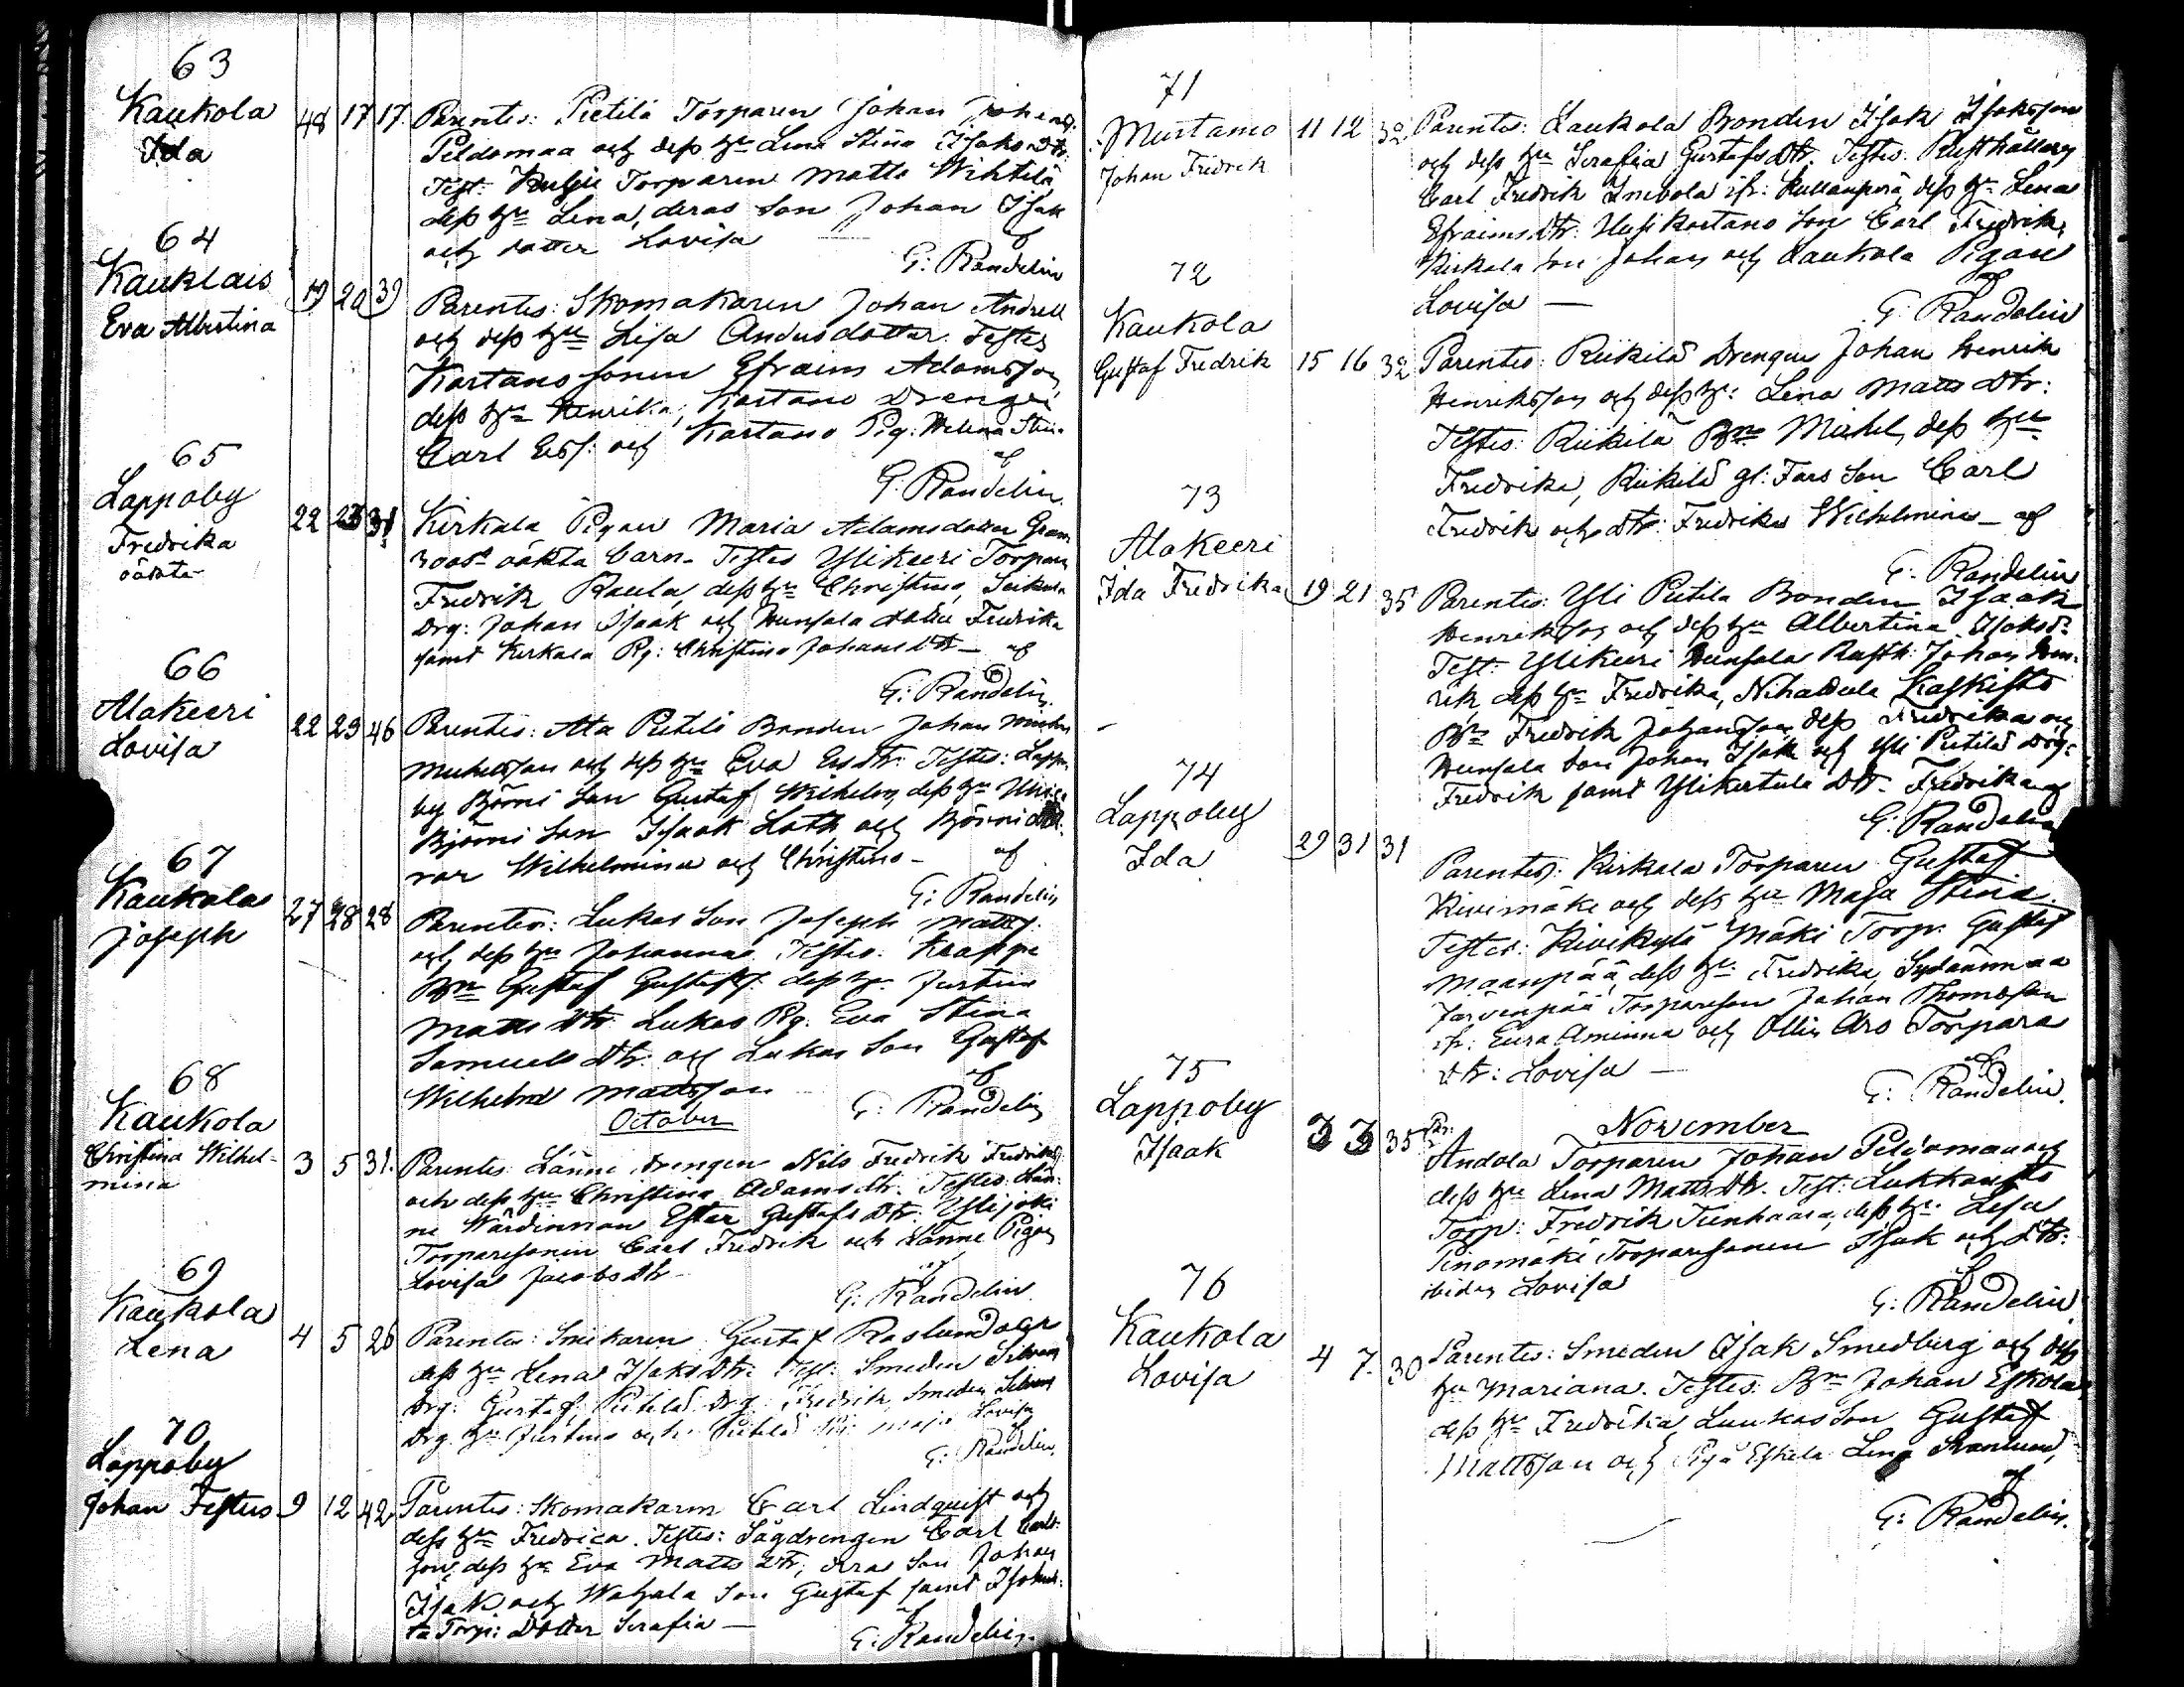 63
Kaukola
Ida
48 17 17
Parentes: Pietilä Torparen Johan Johansf:
Peldomaa och dess hu Lena Stina Isaks Dtr.
Test: Torparen Matts Wihtilä
dess hu Lena, deras Son Johan Isak
och dotter Lovisa
af
G: Randelin
64
Kauklais
Eva Albertina
19 20 39
Parentes: Skomakaren Johan Andrell
och dess hu Lisa Andersdotter. Testes
Kartano sonen Efraim Adamsson
dess hu Henrika, Kartano Drengen
Carl Ersf: och Kartano Pig: Helena Stin.
af
G. Randelin.
65
Lappoby
Fredrika
oäkta
22 23 31
Kirkala Pigan Maria Adamsdotter Gran
roos oäkta barn. Testes Ylikeeri Torparen
Fredrik Raula, dess hu Christina,
Drg: Johan Isaak och Hunsala dotter Fredrika
samt Kirkala Pg: Christina Johans Dtr — af
G: Randelin.
66
Alakeeri
Lovisa
22 23 46
Parentes: Ala Pietilä Bonden Johan Michel
Michelsson och dess hu Eva Ers Dtr. Testes: Lappo
by Björni Son Gustaf Wilhelm, dess hu
Björni Son Isaak Loth och Björni
rar Wilhelmina och Christina — af
G: Randelin
67
Kaukola
Joseph
27 28 28
Parentes: Lukas Son Joseph Mattsf.
och dess hu Johanna. Testes: Krappe
Bn Gustaf Gustafsf. dess hu Justina
Matts Dtr. Lukas Pg: Eva Stina
Samuels Dtr. och Lukas Son Gustaf
Wilhelm Mattsson
af
G: Randelin
October
68
Kaukola
Christina Wilhel-
mina
3 5 31.
Parentes Länne drengen Nils Fredrik Fredriksf
och dess hu Christina Adams dtr. Testes Län-
ne Wärdinnan Ester Gustafs Dtr. Ylijoki
Torparesonen Carl Fredrik och Länne Pigan
Lovisa Jacobs Dtr
af
G: Randelin
69
Kaukola
Lena
4 5 26
Parentes: Snickaren Gustaf Roslund och
dess hu Lena Isaks Dtr. Test: Smeden
Drg: Gustaf, Pietilä Drg Fredrik, Smeden
Drg. hu Justina och Pietilä Pig Maja Lovisa
af
G: Randelin.
70
Lappoby
Johan Festus
9 12 42
Parentes: Skomakaren Carl Lindquist och
dess hu Fredrica. Testes: Sågdrengen Carl Carls-
son, dess hu Eva Matts Dtr, deras Son Johan
Isak och Wahala Son Gustaf samt
Torp: Dotter Serafia —
af
G: Randelin.
71
Mustamo
Johan Fredrik
11 12 32
Parentes: Laukola Bonden Isak Isaksson
och dess hu Serafia Gustafs Dtr. Testes: Rusthållaren
Carl Fredrik ifr: Kullanperä, dess hu Lena
Efraims Dtr. Uusikartano Son Carl Fredrik,
Kirkala Son Johan och Laukola Pigan
Lovisa —
af
G. Randelin
72
Kaukola
Gustaf Fredrik
15 16 32
Parentes: Riikilä Drengen Johan Henrik
Henriksson och dess hu: Lena Matts Dtr:
Testes: Riikilä Bn Michel, dess hu
Fredrika, Riikilä gl: Fars Son Carl
Fredrik och Dtr: Fredrika Wilhelmina — af
G. Randelin
73
Alakeeri
Ida Fredrika
19 21 35
Parentes: Yli Pietilä Bonden Isaak
Henriksson och dess hu Albertina Isaksd:
Test: Ylikeeri Hunsala Rusth: Johan Hen-
rik dess hu Fredrika, Nihattula Kaskisto
Bn Fredrik Johansson, dess Fredrika och
Hunsala Son Johan Isak och Yli Pietilä Drg:
Fredrik samt Ylikertula Dtr. Fredrika af
G: Randelin
74
Lappoby
Ida
29 31 31
Parentes: Kirkala Torparen Gustaf
Kivimäki och dess hu Maja Stina.
Testes: Kivikylä Mäki Torp. Gustaf
Maanpää, dess hu Fredrika, Sydänmaa
Järvenpää Torpareson Johan Thomasson
ifr: Eura Aminna och Ollin Aro Torpare
Dtr: Lovisa —
af
G: Randelin.
November
75
Lappoby
Isaak
3 3 35
Par:
Andola Torparen Johan Peldomaa och
dess hu Lena Matts Dtr. Test:
Torp: Fredrik Tienhaara, dess hu Lisa
Pinomäki Torparesonen Isak och Dtr:
ibidem Lovisa
af
G: Randelin
76
Kaukola
Lovisa
4 7 30
Parentes: Smeden Isak Smedberg och dess
hu Mariana. Testes: Bn Johan Eskola,
dess hu Fredrika, Luukas Son Gustaf
Mattsson och Piga Eskola Lena
af
G: Randelin.